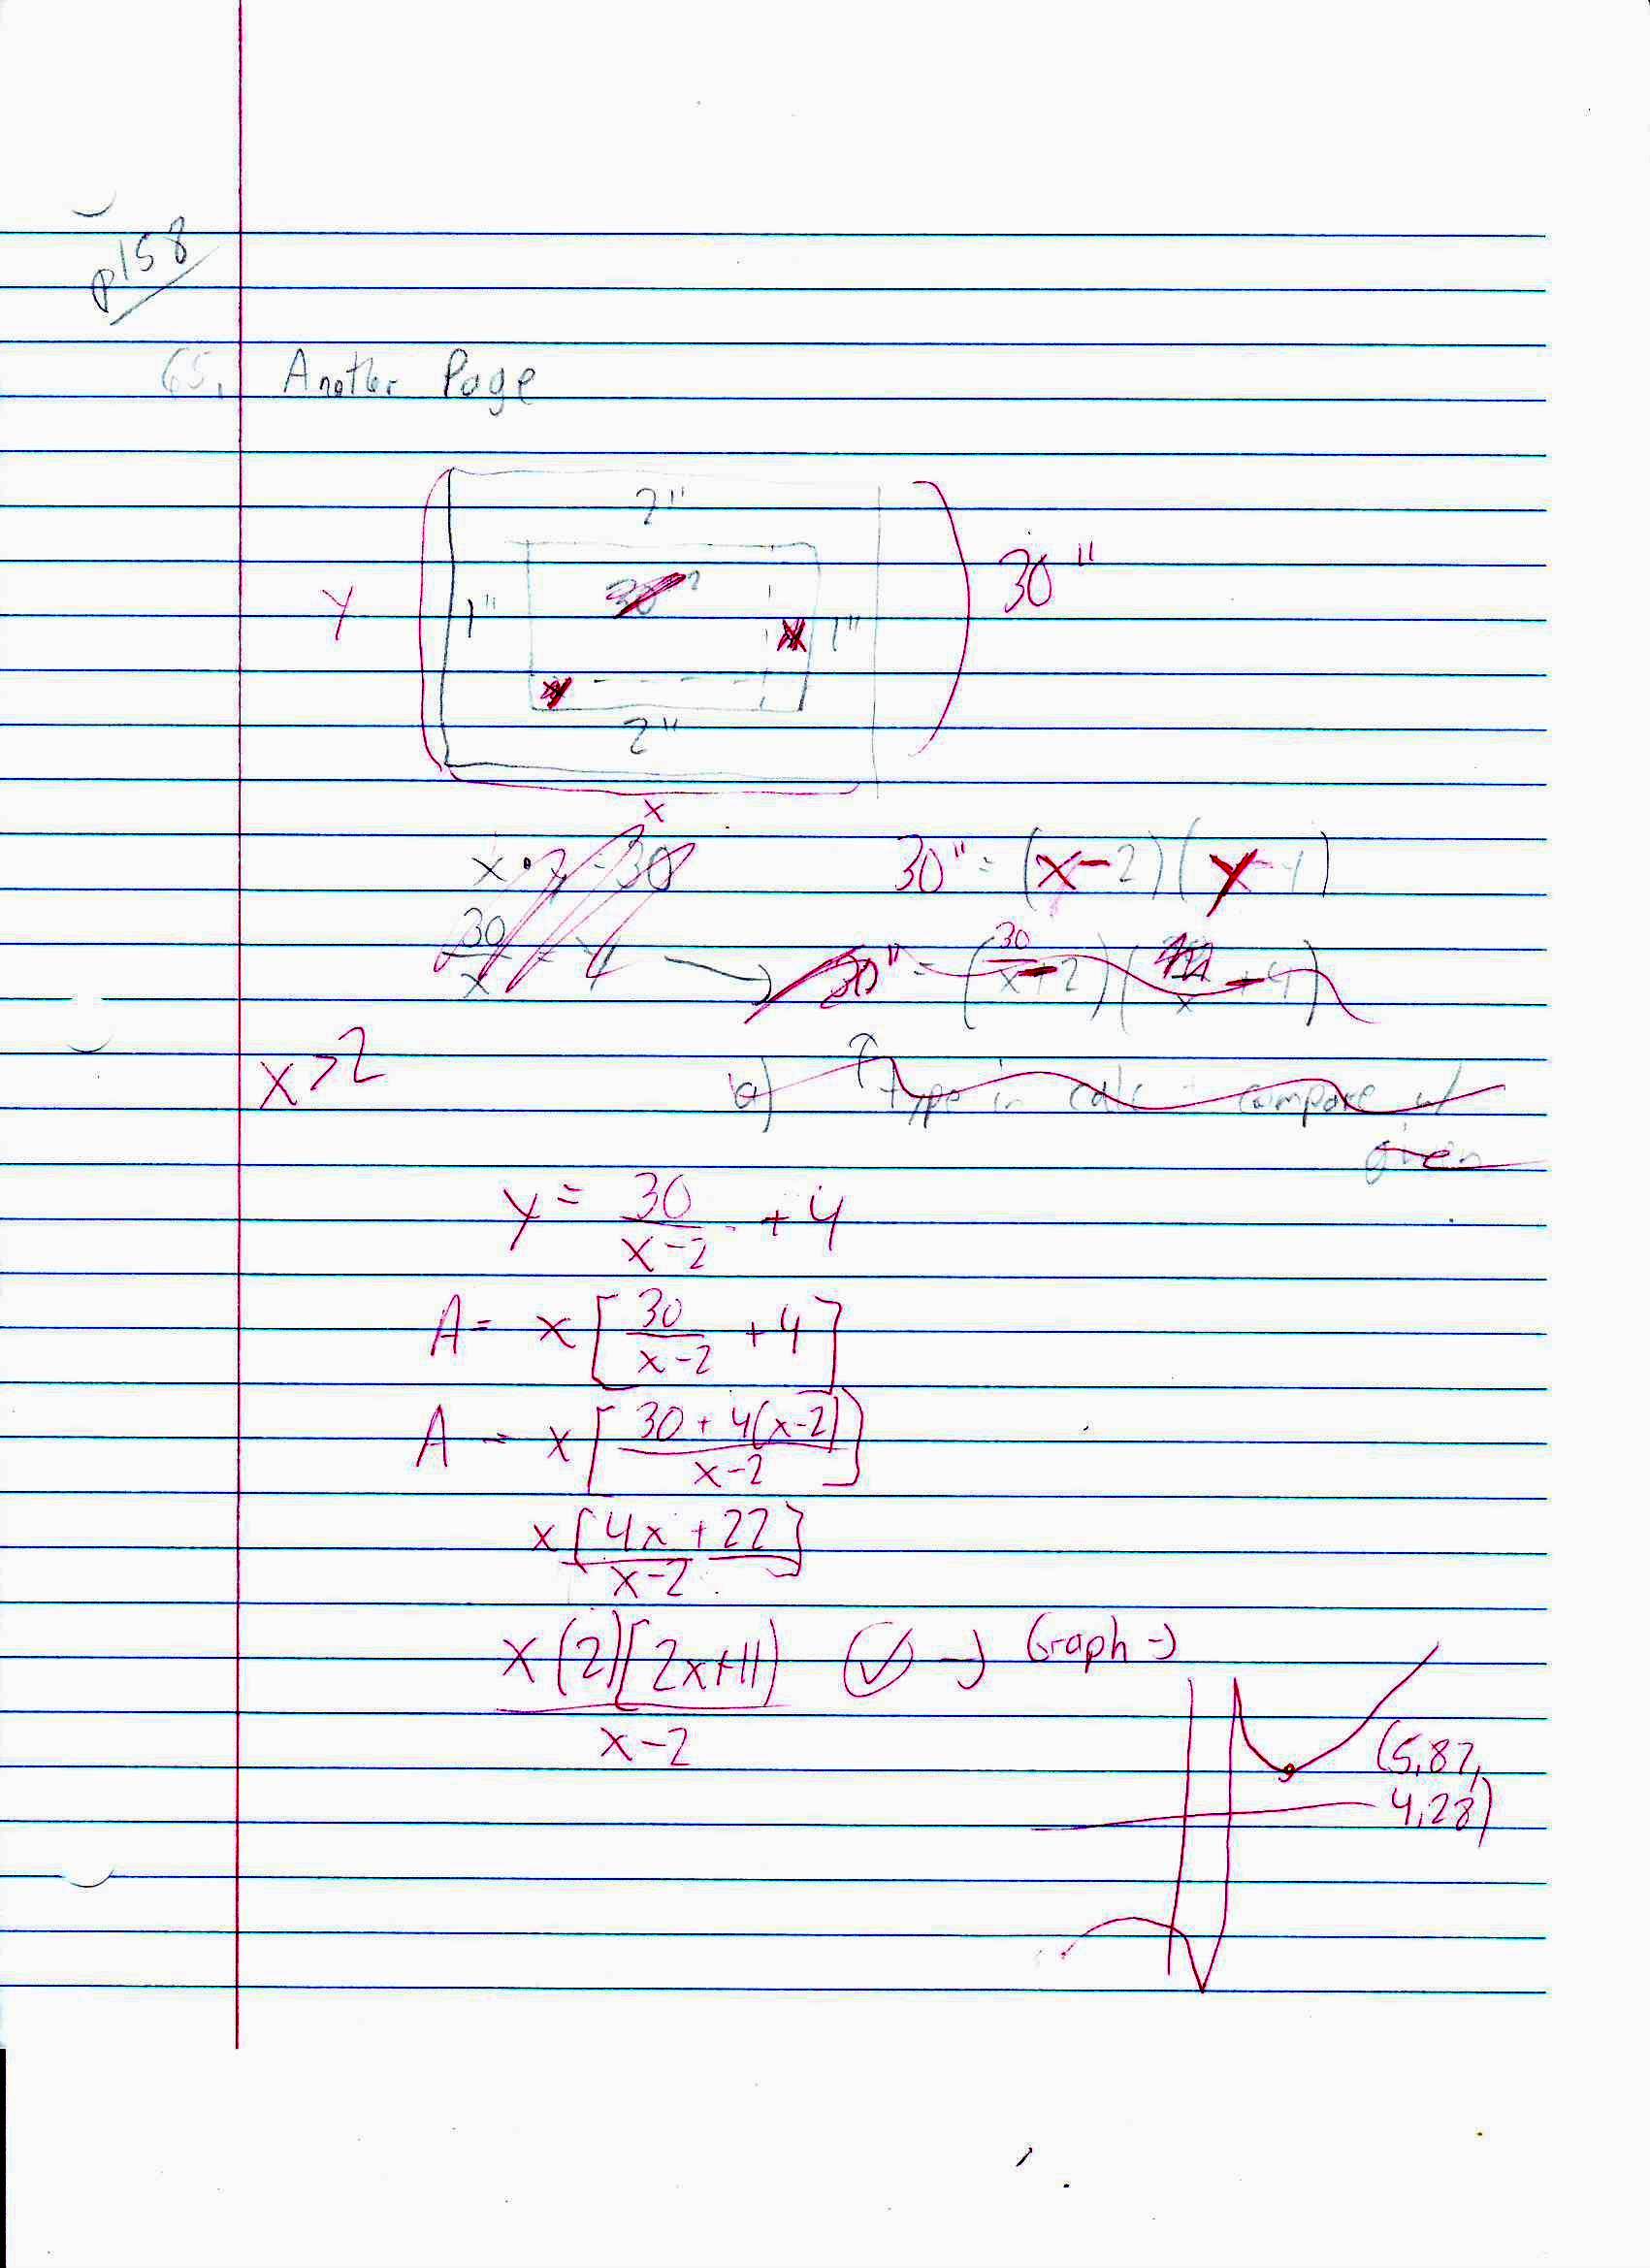 p158
65. Another Page
2"
30"
Y 1" 1" 30"
2"
x
x · y = 30 30" = (x-2)(y-4)
30/x = y → 30" = (30/x-2)( +4)
x >2
b) ↑ type in calc + compare w/
given
y = 30/(x-2) + 4
A = x [30/(x-2) + 4]
A = x [(30 + 4(x-2))/(x-2)]
x [4x + 22]/(x-2)
x(2)[2x+11)/(x-2) ✓ → Graph →
(5.87,
4.28)